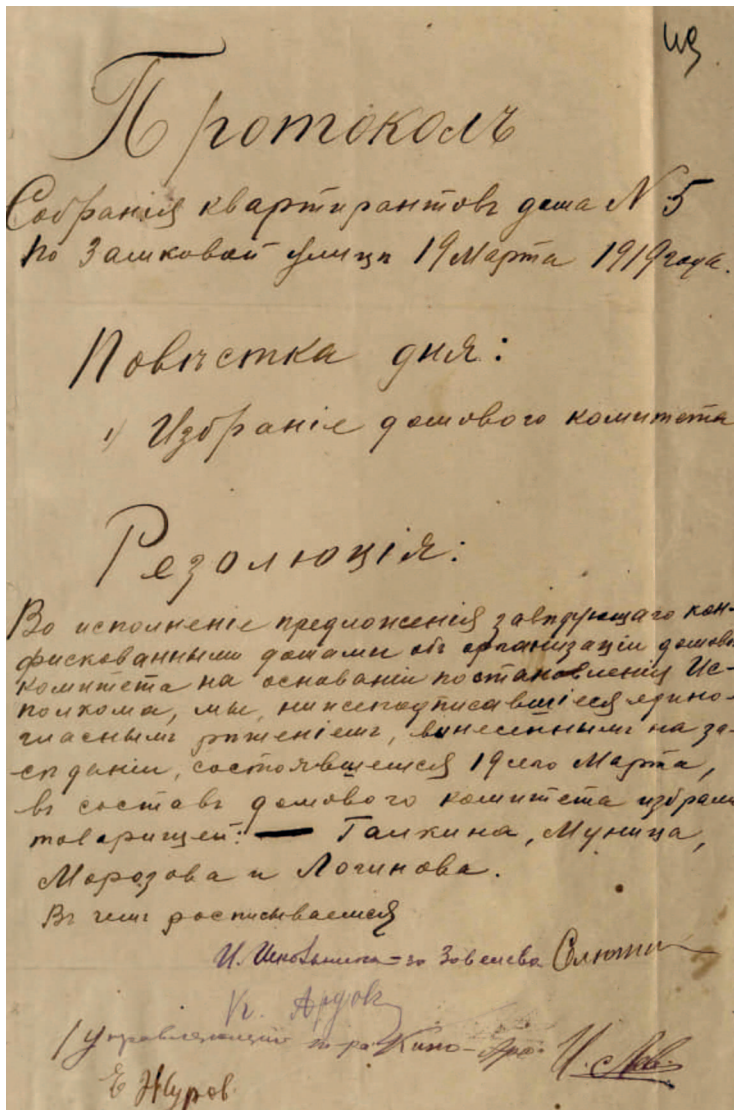 Протоколъ
Собранія квартирантовъ дома N 5
по Замковой улицѣ 19 Марта 1919 года.
Повѣстка дня:
1) Избраніе домового комитета
Резолюція:
Во исполненіе предложенія завѣдующаго кон-
фискованными домами объ организаціи домов.
комитета на основаніи постановленія Ис-
полкома, мы, нижеподписавшіеся едино-
гласнымъ рѣшеніемъ, вынесеннымъ на за-
сѣданіи, состоявшемся 19 сего Марта,
въ составъ домового комитета избрали
товарищей: — Галкина, Муница,
Морозова и Логинова.
Въ чемъ росписываемся
Управляющій Кино-
Е Журов